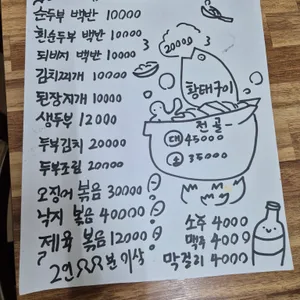 순두부 백반 10000
흰순두부 백반 10000
되비지 백반 10000
김치찌개 10000
된장찌개 10000
생두부 12000
두부김치 20000
두부조림 20000
오징어 볶음 30000
낙지 볶음 40000
제육 볶음 12000
2인 분 이상
3
3
20000
황태구이
전골
대 45000
소 35000
소주 4000
맥주 4000
막걸리 4000